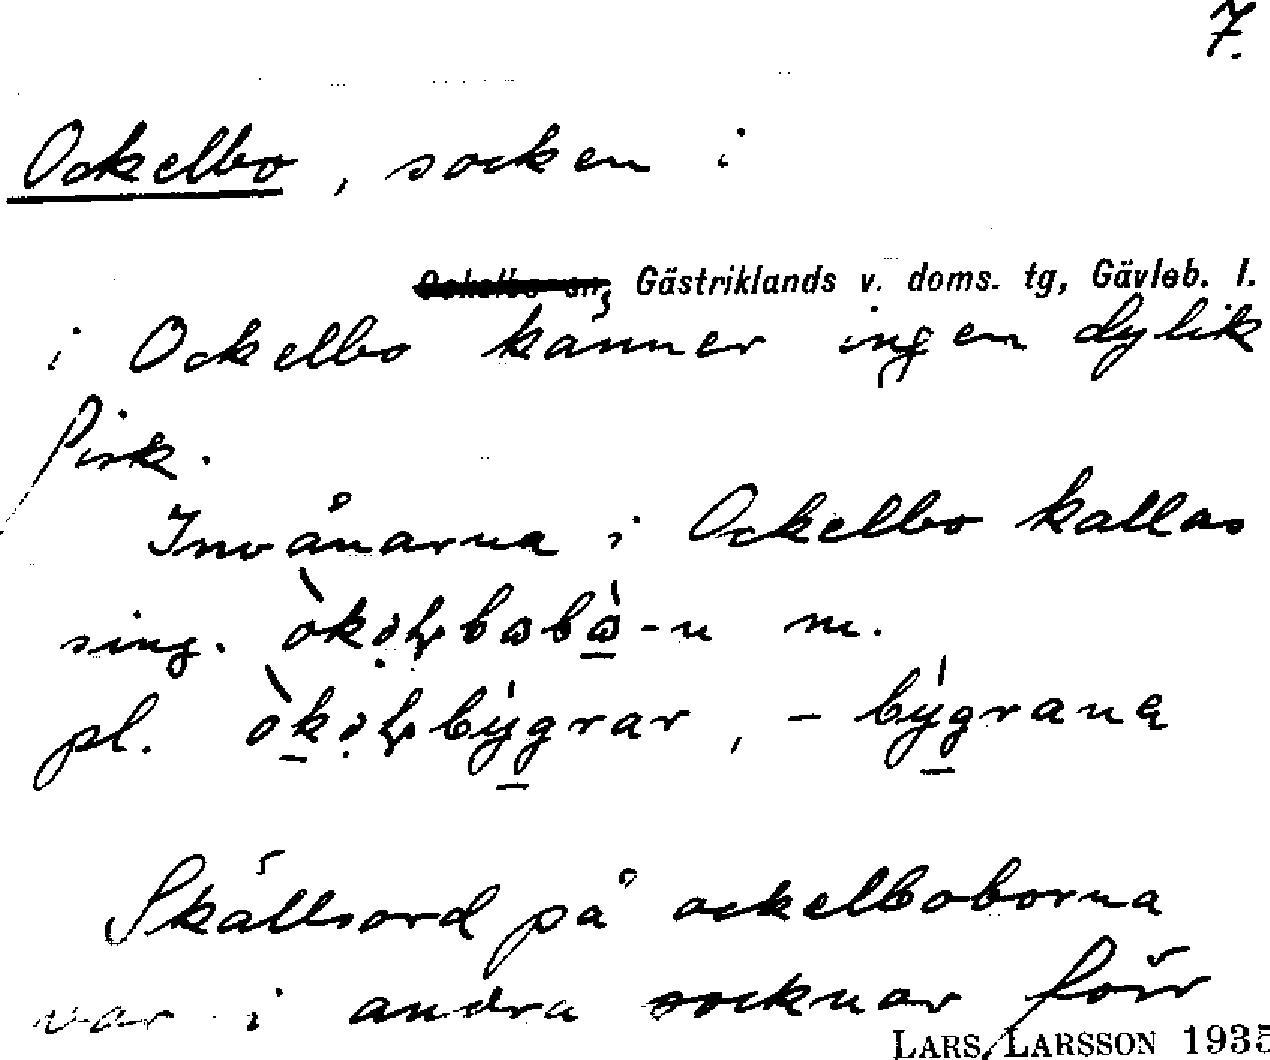 7.
Ockelbo, socken i
Gästriklands v. doms. tg, Gävleb. l.
i Ockelbo känner ingen dylik
fisk.
Invånarna i Ockelbo kallas
sing. -n m.
pl.
Skällsord på ockelboborna
var i andra socknar förr
LARS LARSSON 1935